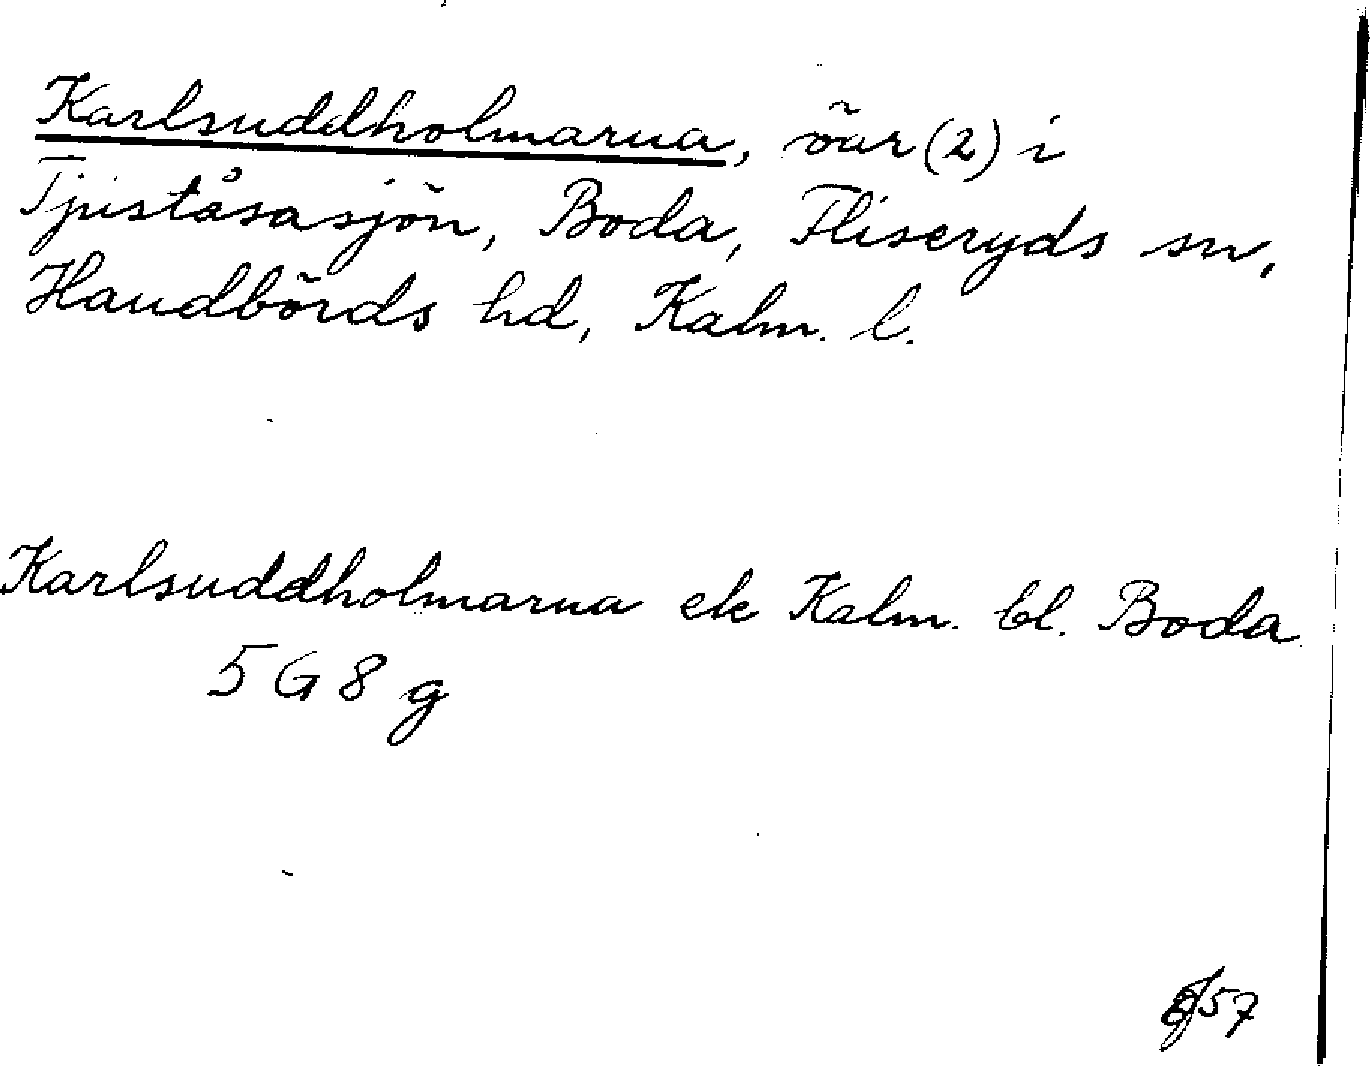 Karlsuddholmarna, öar (2) i
Tjuståsasjön, Boda, Fliseryds sn,
Handbörds hd, Kalm. l.
Karlsuddholmarna ek Kalm. bl. Boda
5 G 8 g
57